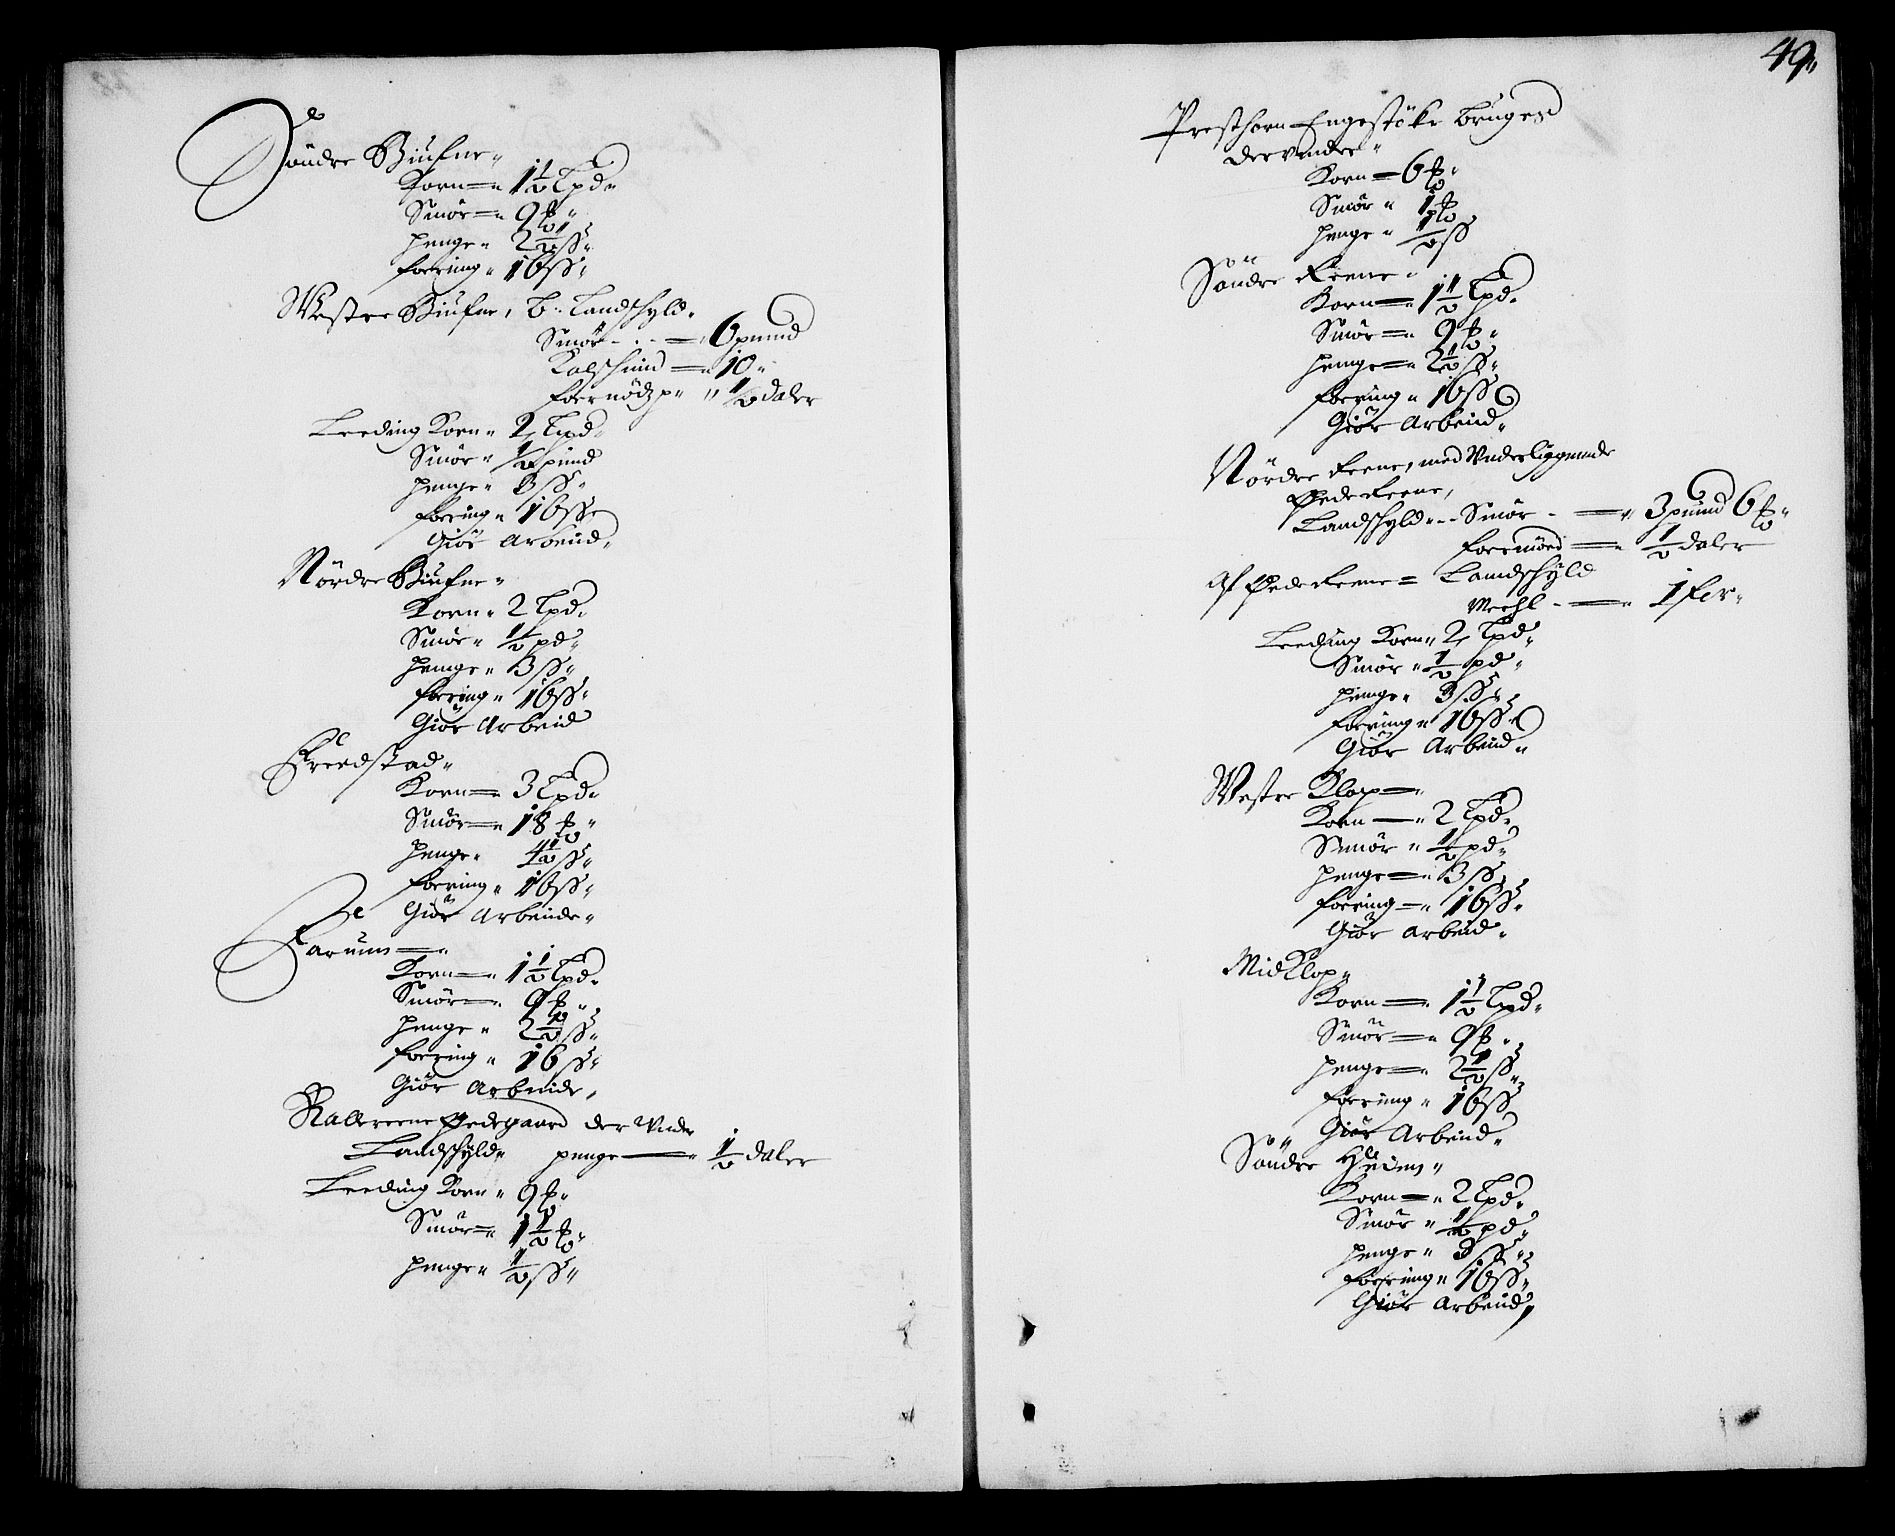 Søndre Biufne„
Korn = 1½ Lpd„
Smør = 9 ℔„
penge„ 2½ ß„
foering„ 16 ß„
Westre Biufne, B: Landschyld„
Smør - . - = 6 pund
Kalschind = 10„
foernødz p„ „ ½ daler
Leeding Korn„ 2 Lpd„
Smør„ ½ pund
penge„ 3 ß„
foering„ 16 ß„
Giør Arbeid„
Nørdre Biufne„
Korn„ 2 Lpd„
Smør„ ½ pd„
penge„ 3 ß„
foering„ 16 ß„
Giør Arbeid
Freedstad„
Korn = 3 Lpd„
Smør = 18 ℔„
penge„ 4½ ß„
foering„ 16 ß„
Giør Arbeide„
Farum =
Korn = 1½ Lpd„
Smør = 9 ℔„
penge„ 2½ ß„
foering„ 16 ß„
Giør Arbeide„
Rallereene Ødegaard der Under
Landschyld„ penge = ½ daler
Leeding Korn„ 9 ℔„
Smør = 1½ ℔„
penge„ ½ ß„
49„
Presthorn Engestöke bruges
derunder„
Korn = 6 ℔„
Smør„ 1 ℔
penge„ ½ ß
Søndre Reene„
Korn = 1½ Lpd„
Smør = 9 ℔„
penge = 2½ ß„
foering„ 16 ß
Giør Arbeid„
Nørdre Reene, med Underliggende
Øde Reene,
Landschyld„ - - Smør - = „ 3 pund 6 ℔„
foernøed = ½ daler
Af Øde Reene = Landschyld
Meehl - = 1 fer„
Leeding Korn„ 2 Lpd„
Smør„ ½ pd„
penge„ 3 ß„
foering„ 16 ß„
Giør Arbeid„
Westre Klop =
Korn = 2 Lpd„
Smør„ ½ pd„
penge = 3 ß„
foering = 16 ß„
Giør Arbeid„
Mid Klop„
Korn = 1½ Lpd„
Smør = 9 ℔„
penge = 2½ ß„
foering„ 16 ß
Giør Arbeid„
Søndre Heien„
Korn = 2 Lpd„
Smør„ ½ pd„
penge„ 3 ß„
foering„ 16 ß„
Giør Arbeid,